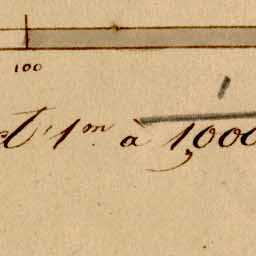 100
1
et 1m à 1,000